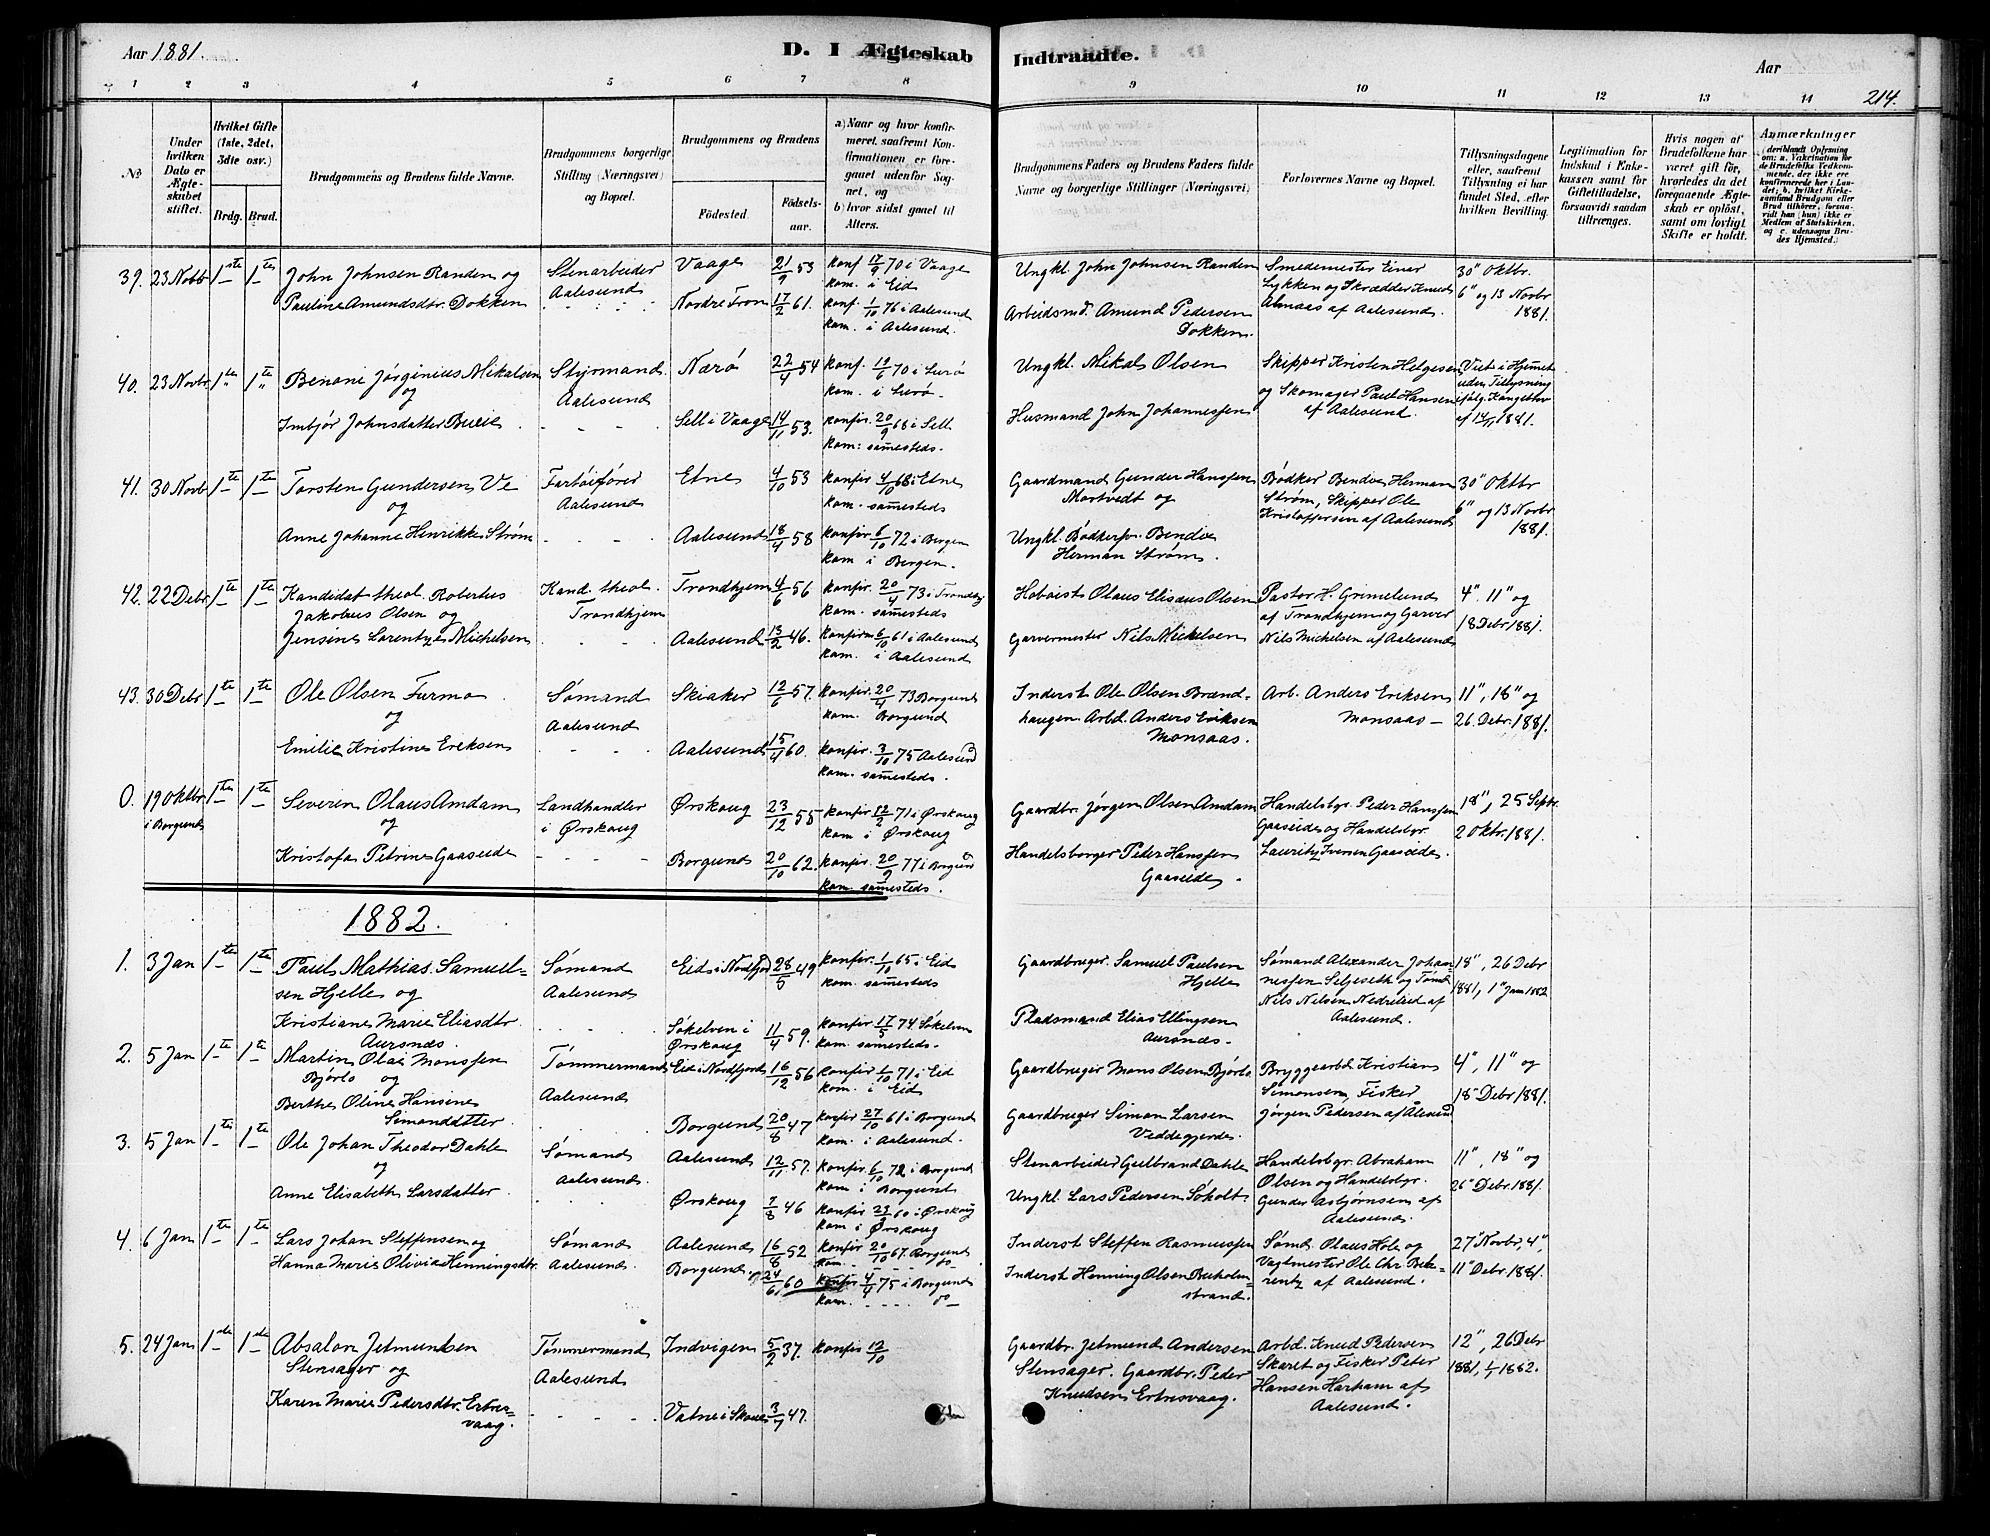 Aar 1881.
D. I Ægteskab Indtraadte.
Aar
214.
1 2 3 4 5 6 7 8 9 10 11 12 13 14
No
Under hvilken Dato er Ægteskabet stiftet.
Hvilket Gifte (1ste, 2det, 3die osv.)
Brdg. Brud.
Brudgommens og Brudens fulde Navne.
Brudgommens borgerlige Stilling (Næringsvei) og Bopæl.
Brudgommens og Brudens
Fødested. Fødselsaar.
a) Naar og hvor konfirmeret, saafremt Konfirmationen er foregaaet udenfor Sognet, og
b) hvor sidst gaaet til Alters.
Brudgommens Faders og Brudens Faders fulde Navne og borgerlige Stillinger (Næringsvei)
Forlovernes Navne og Bopæl.
Tillysningsdagene eller, saafremt Tillysning ei har fundet Sted, efter hvilken Bevilling.
Legitimation for Indskud i Enkekassen samt for Giftetilladelse, forsaavidt saadan tiltrænges.
Hvis nogen af Brudefolkene har været gift før, hvorledes da det foregaaende Ægteskab er opløst, samt om lovligt Skifte er holdt.
Anmærkninger (deriblandt Oplysning om: a. Vakcination for de Brudefolks Vedkommende, der ikke ere konfirmerede her i Landet; b. hvilket Kirkesamfund Brudgom eller Brud tilhører, forsaavidt han (hun) ikke er Medlem af Statskirken, og c. udensogns Brudes Hjemsted.)
39. 23 Novb 1ste 1ste John Johnsen Randen og Stenarbeider Vaage 21/9 53 konf 17/9 70 i Vaage Ungkl. John Johnsen Randen Smedemester Einar 30" Oktbr.
Aalesund kom. i Eid Lykken og Skrædder Knud 6" og 13 Novbr
Pauline Amundsdtr. Dokken Nordre Fron 17/2 61. konf. 1/10 76 i Aalesund Arbeidsmd. Amund Pedersen Almaas af Aalesund. 1881.
kom. i Aalesund. Dokken.
40. 23 Novbr 1te 1te Benoni Jørginius Mikalsen Styrmand Nærø 22/4 54 konf. 19/6 70 i Lurø Ungkl. Mikal Olsen Skipper Kristen Helgesen Viet i Hjemet
og Aalesund kom. i Lurø. og Skomager Paul Hansen uden Tillysning
Imbjør Johnsdatter Sell i Vaage 14/11 53. konfir. 20/9 68 i Sell Husmand John Johannessen af Aalesund. af 14/11 1881.
kom: samesteds.
41. 30 Novb 1te 1te Torsten Gundersen Ve Fartøifører Etne 4/10 53 konfir 4/10 68 i Etne Gaardmand Gunder Hanssen Bødker Bendix Herman 30" Oktbr
og Aalesund kom. samesteds Mortvedt og Strøm, Skipper Ole 6" og 13 Novbr
Anne Johanne Henrikke Strøm Aalesund 18/4 58 konfir 6/10 72 i Bergen Ungkl. Bødkersv. Bendix Kristoffersen af Aalesund 1881.
kom i Bergen. Herman Strøm.
42. 22 Debr 1te 1te Kandidat theol. Robertus Kand. theol. Trondhjem 4/6 56 konfir. 20/4 73 i Trondhj Hoboist Olaus Elisæus Olsen Pastor H. Grimelund 4". 11" og
Jakobus Olsen og Trondhjem kom. samesteds af Trondhjem og Garver 18 Debr 1881.
Jensine Larentze Michelsen Aalesund 13/2 46. konfirm 6/10 61 i Aalesund Garvermester Nils Michelsen Nils Michelsen af Aalesund
kom. i Aalesund
43. 30 Debr 1te 1te Ole Olsen Furmo Sømand Skiaker 12/6 57. konfir. 20/4 73 Borgund Inderst Ole Olsen Brænd- Arb. Anders Eriksen 11", 18" og
og Aalesund kom. Borgund haugen. Arbd. Anders Eriksen Monsaas – 26. Debr. 1881.
Emilie Kristine Eriksen Aalesund 15/4 60. konfir. 3/10 75 Aalesund Monsaas.
kom. samesteds.
0. 19 Oktbr 1te 1te Severin Olaus Amdam Landhandler Ørskoug 23/12 55 konfir. 12/2 71 i Ørskoug Gaardbr. Jørgen Olsen Amdam Handelsbgr. Peder Hanssen 18", 25 Septr.
i Borgund og i Ørskoug kom i Ørskoug Gaaseide og Handelsbgr. 2 Oktbr. 1881.
Kristofa Petrine Gaaseide Borgund 20/10 62. konfir. 20/9 77 i Borgund Handelsborger Peder Hanssen Lauritz Iversen Gaaseide.
kom. samesteds. Gaaseide.
1882.
1. 3 Jan 1te 1te Paul Mathias Samuel- Sømand Eid i Nordfjord 28/5 49 konfir. 1/10 65 i Eid Gaardbruger. Samuel Paulsen Sømand Alexander Johan- 18", 26 Debr
sen Hjelle og Aalesund kom. samesteds Hjelle nessen Selgeseth og Tømd. 1881, 1" Jan 1882
Kristiane Marie Eliasdtr. Søkelven i 11/4 59. konfir. 17/5 74 Søkelven Pladsmand Elias Ellingsen Nils Nilsen Nedrelid af
Aursnes. Ørskoug kom. samesteds. Aursnæs. Aalesund.
2. 5 Jan 1te 1te Martin Olai Monssen Tømmermand Eid i Nordfjord 16/12 56 konfir 1/10 71 i Eid Gaardbruger Mons Olsen Bjørlo Bryggearbd. Kristian 4", 11" og
Bjørlo og Aalesund kom. i Eid Simonsen, Fisker 18" Debr 1881.
Berthe Oline Hansine Borgund 20/8 47 konfir 27/10 61 i Borgund Gaardbruger Simon Larsen Jørgen Pedersen af Ålesund
Simondatter kom. i Aalesund. Veddegjerde.
3. 5 Jan 1te 1te Ole Johan Theodor Dahle Sømand Aalesund 12/11 57. konfir 6/10 72 i Borgund Stenarbeider Gulbrand Dahle Handelsbgr. Abraham 11", 18" og
og Aalesund. kom i Borgund Olsen og Handelsbgr. 26" Debr 1881.
Anne Elisabeth Larsdatter. Ørskoug 7/8 46 konfir 23/9 60 i Ørskoug Ungkl. Lars Pedersen Søholt Gunder Asbjørnsen af
kom i Ørskoug Aalesund.
4. 6 Jan 1te 1te Lars Johan Steffensen og Sømand Aalesund 16/8 52 konfir 20/10 67. Borgund Inderst Steffen Rasmussen Sømd. Olaus Hole og 27" Novbr, 4",
Hanna Marie Olivia Henningsdtr. Aalesund. Borgund. 24/6 60 konfir 4/4 75 i Borgund Inderst Henning Olsen Buholm- Vagtmester Ole Chr. Bek- 11" Debr. 1881.
kom. do strand. rentz af Aalesund.
5. 24 Jan 1ste 1ste Absalon Jetmundsen Tømmermand Indvigen 5/2 37. konfir 12/10 Gaardbr. Jetmund Andersen Arbd. Knud Pedersen 12", 26 Debr
Stensager og Aalesund Stensager. Gaardbr. Peder Skaret og Fisker Peter 1881, 1/1 1882.
Karen Marie Pedersdtr. Ertnes- Vatne i Skoue 3/7 47. Knudsen Ertnesvaag. Hansen Harham af
vaag. Aalesund.